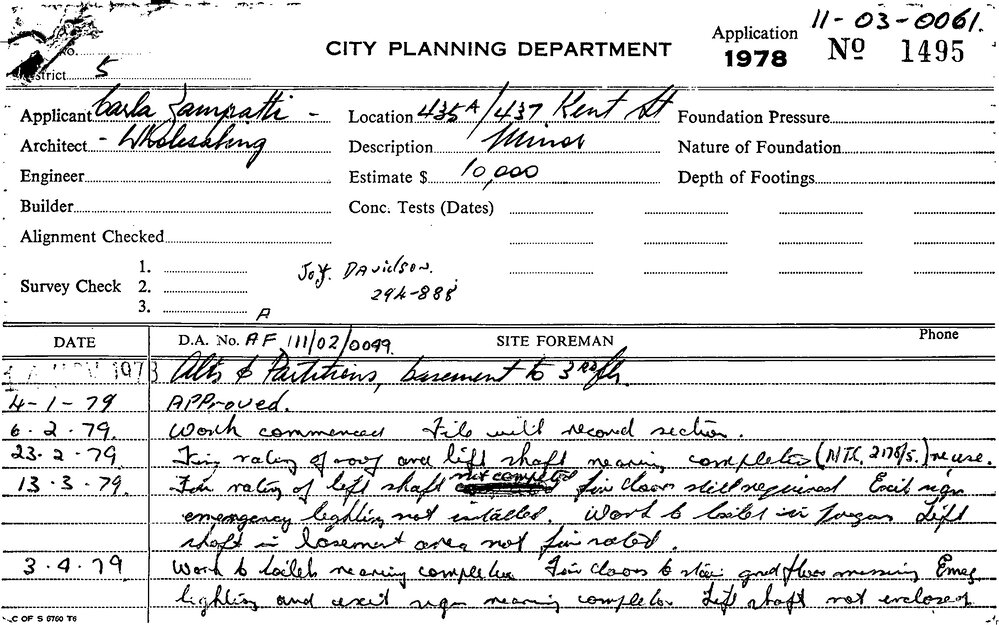 11-03-0061.
CITY PLANNING DEPARTMENT
Application
1978 No 1495
District 5
Applicant Carla Zampatti - Location 435A/437 Kent St Foundation Pressure
Architect - Wholesaling Description Minor Nature of Foundation
Engineer Estimate $ 10,000 Depth of Footings
Builder Conc. Tests (Dates)
Alignment Checked
Survey Check 1. 2. 3.
Joy. Davidson.
294-888
A
DATE D.A. No. AF 111/02/0099. SITE FOREMAN Phone
NOV 1978 Alts & Partitions, basement to 3rd flr.
4-1-79 APProved.
6.2.79. Work commenced File with record section.
23.2.79 Fire rating of roof and lift shaft nearing completion (NTC. 2178/5.) re use.
13.3.79. Fire rating of lift shaft not completed fire doors still required Exit sign
emergency lighting not installed. Work to toilets in progress Lift
shaft in basement area not fire rated.
3.4.79 Work to toilets nearing completion Fire doors to stair grnd floor missing Emerg
lighting and exit sign nearing completion Lift shaft not enclosed
C OF S 6760 T6